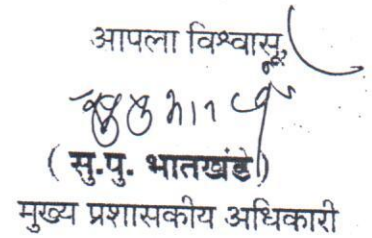 आपला विश्वासू,
( सु.पु. भातखंडे )
मुख्य प्रशासकीय अधिकारी